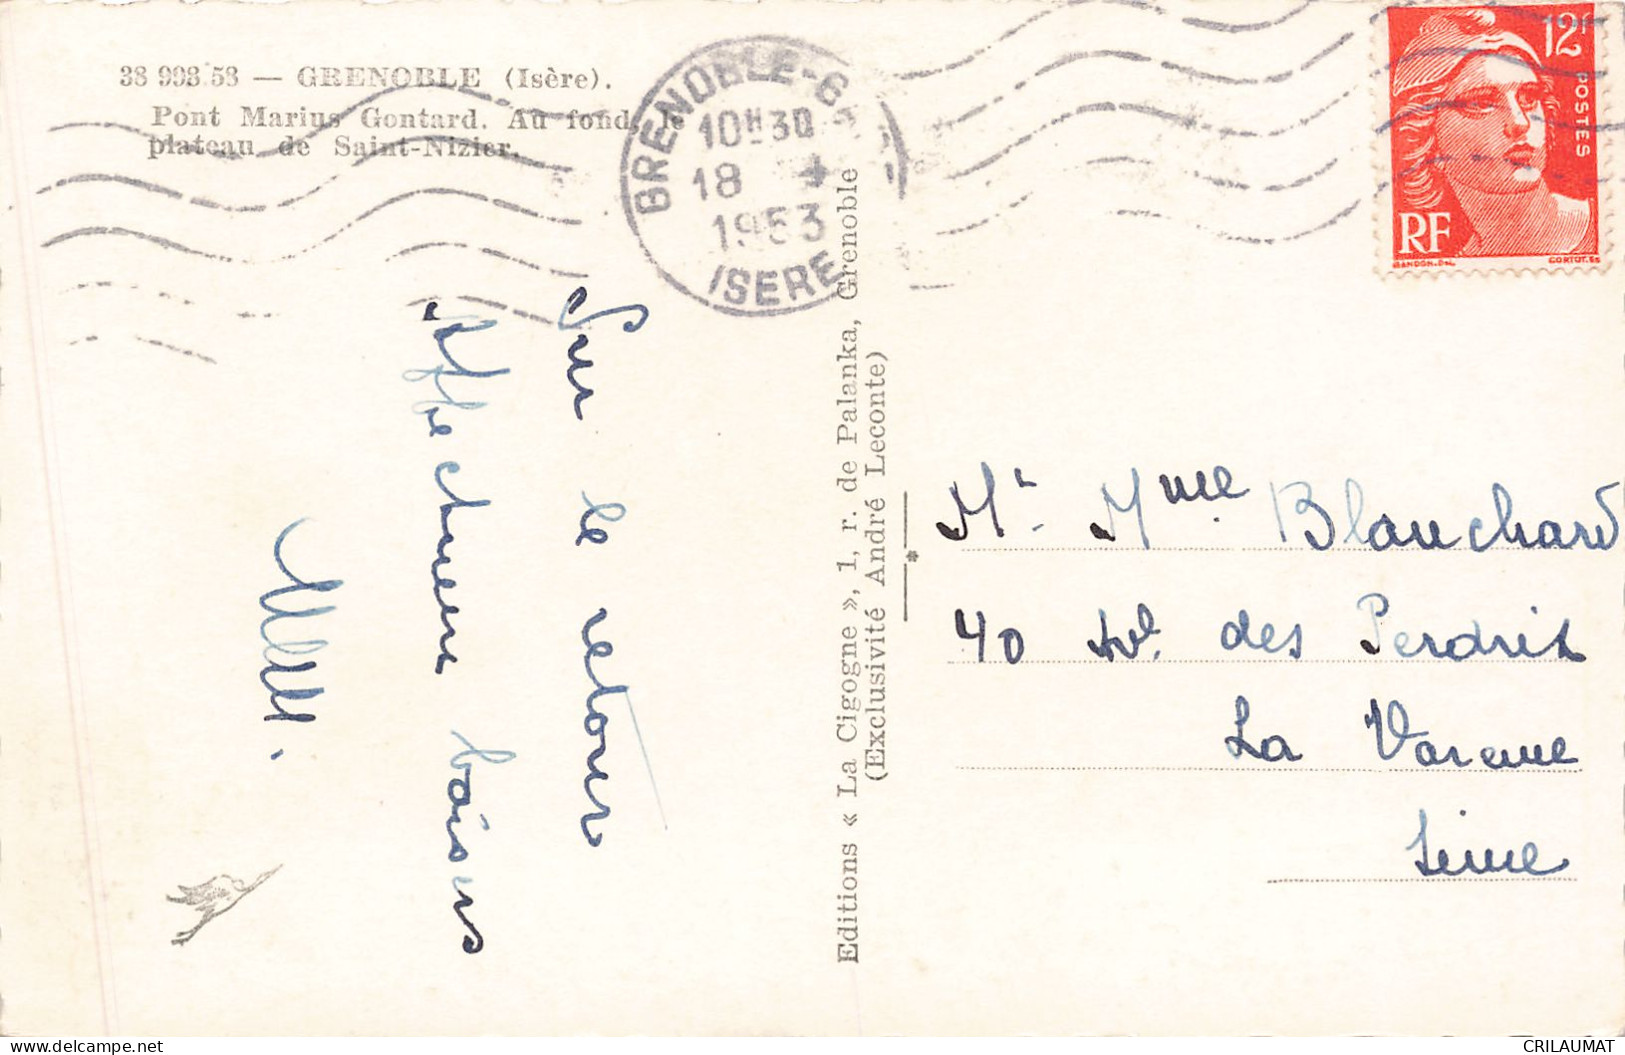 38 998.58 — GRENOBLE (Isère).
Pont Marius Gontard. Au fond, le
plateau de Saint-Nizier.
GRENOBLE-GA
10H30
18
1953
ISERE
12F
POSTES
RF
GANDON.DEL
CORTOT.SC
Sur le retour
Affectueux baisers
Editions « La Cigogne », 1, r. de Palanka, Grenoble
(Exclusivité André Leconte)
*
Mr. Mme Blanchard
40 Av. des Perdrix
La Varenne
Seine
delcampe.net
CRILAUMAT